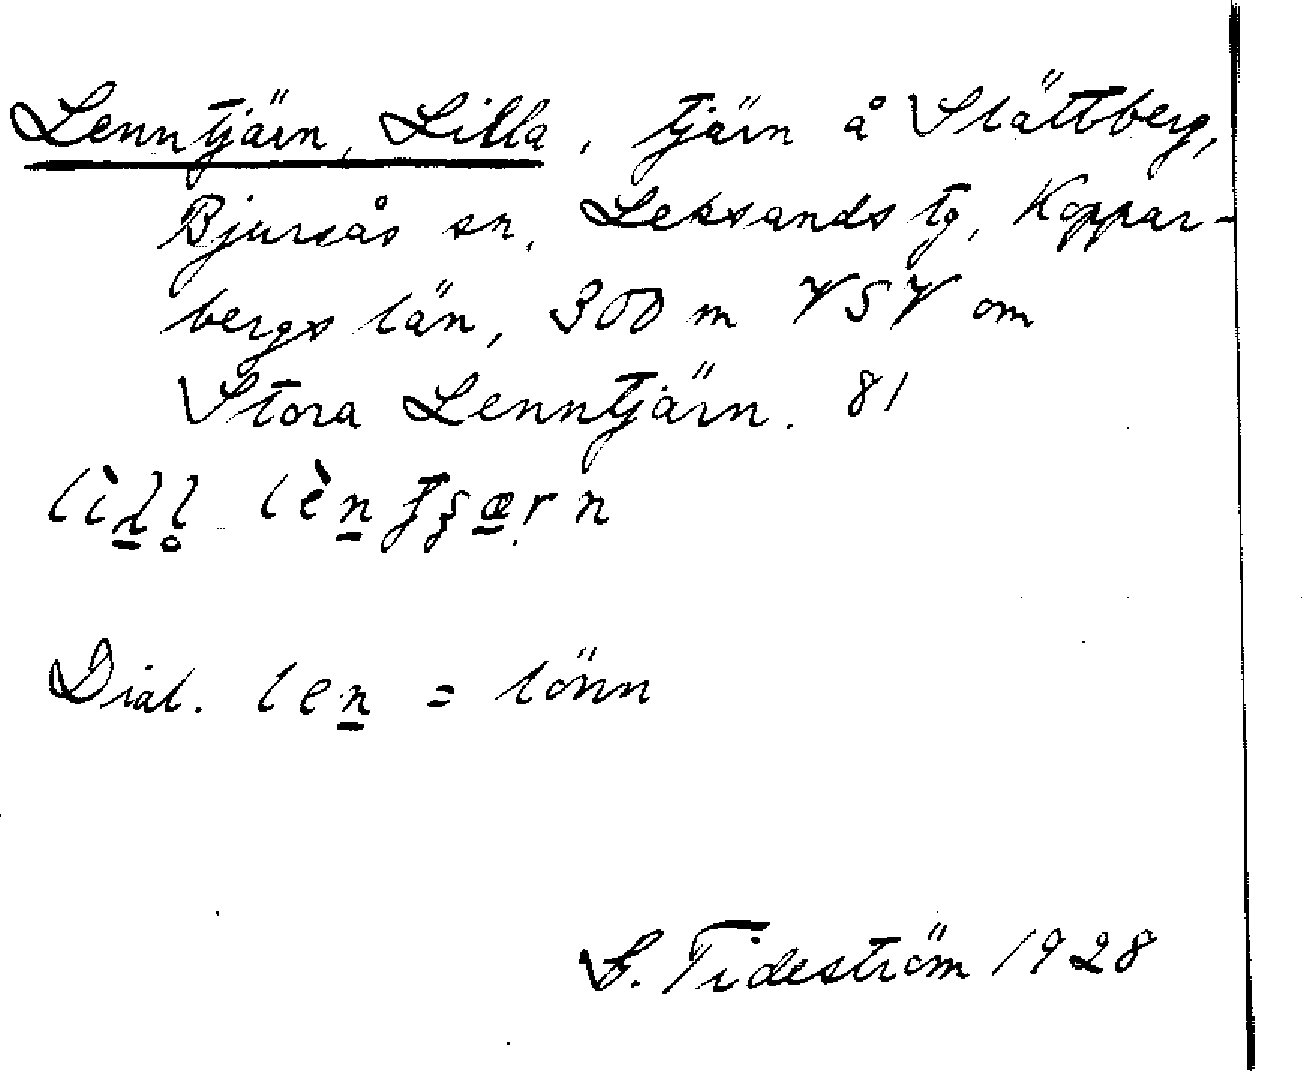 Lenntjärn, Lilla, tjärn å Slättberg,
Bjursås sn, Leksands tg, Koppar-
bergs län, 300 m VSV om
Stora Lenntjärn. 81
Dial. len = lönn
G. Tideström 1928